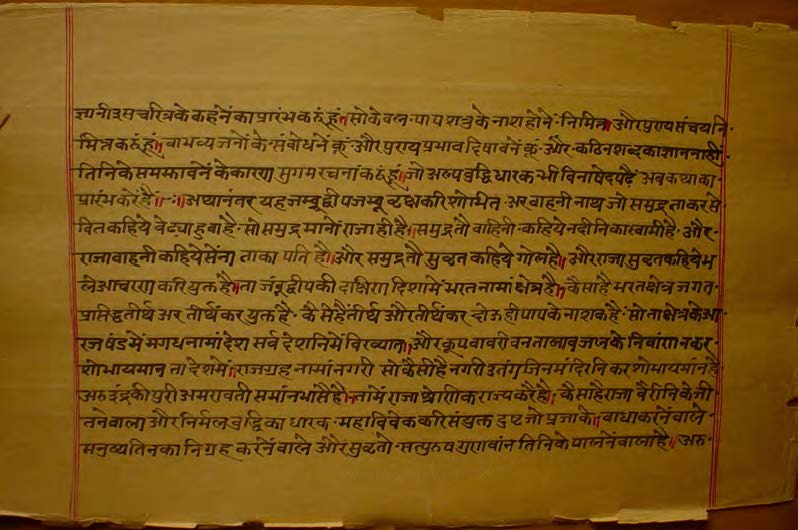 ज्ञानी उस चरित्र के कहनें का प्रारंभ करूं हूं॥ सो केवल पाप शत्रु के नाश होने निमित्त॥ और पुण्य संचय नि-
मित्त करूं हूं॥ वा भव्य जनों के संबोधनें कूं और पुण्य प्रभाव दिषावनें कूं और कठिन शब्द का ज्ञान नाहीं
तिनिके समझावनें के कारण सुगम रचनां करूं हूं॥ जो अल्प बुद्धि धारक भी विना षेद पढैं अब कथा का
प्रारंभ करें हैं॥ ॥ अथानंतर यह जम्बूद्वीप जम्बू वृक्ष करि शोभित अर वाहनी नाथ जो समुद्र ता कर से
वित कहिये वेढ्या हुवा है सो समुद्र मानों राजा ही है॥ समुद्र तौ वाहिनी कहिये नदी निका स्वामी है और
राजा वाहनी कहिये सेंना ता का पति है॥ और समुद्र तौ सुवृत कहिये गोल है॥ और राजा सुवृत कहिये भ
ले आचरण करि युक्त है॥ ता जंबूद्वीप की दक्षिण दिशा में भरत नामां क्षेत्र है॥ कैसा है भरत क्षेत्र जगत
प्रसिद्ध तीर्थ अर तीर्थंकर युक्त है कैसे हैं तीर्थ और तीर्थंकर दोऊ ही पाप के नाशक है सो ता क्षेत्र के आ
रज षंड में मगध नामां देश सर्व देशनि में विख्यात॥ और कूप वावरी वन तालाव जल के निवांण न कर
शोभायमान ता देश में॥ राजग्रह नामां नगरी सो कैसी है नगरी उतंग जिन मंदिरनि कर शोभायमांन है
अरु इंद्र की पुरी अमरावती समांन भासै है॥ ता में राजा श्रेणिक राज्य करै है॥ कैसा है राजा वैरीनि के जी
तनें वाला और निर्मल बुद्धि का धारक महा विवेक करि संयुक्त दुष्ट जो प्रजा के॥ वाधा करनें वाले
मनुष्य तिन का निग्रह करनें वाले और सुवृतो सत्पुरुष गुणवांन तिनि के पालनें वाला है॥ अरु